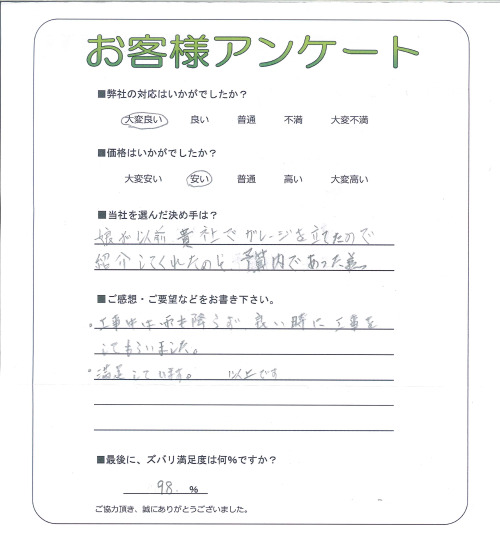 お客様アンケート
■弊社の対応はいかがでしたか？
大変良い 良い 普通 不満 大変不満
■価格はいかがでしたか？
大変安い 安い 普通 高い 大変高い
■当社を選んだ決め手は？
娘が以前貴社でガレージを立てたので
紹介してくれたのと、予算内であった為。
■ご感想・ご要望などをお書き下さい。
・工事中は雨も降らず、良い時に工事を
してもらいました。
・満足しています。 以上です
■最後に、ズバリ満足度は何%ですか？
98. %
ご協力頂き、誠にありがとうございました。